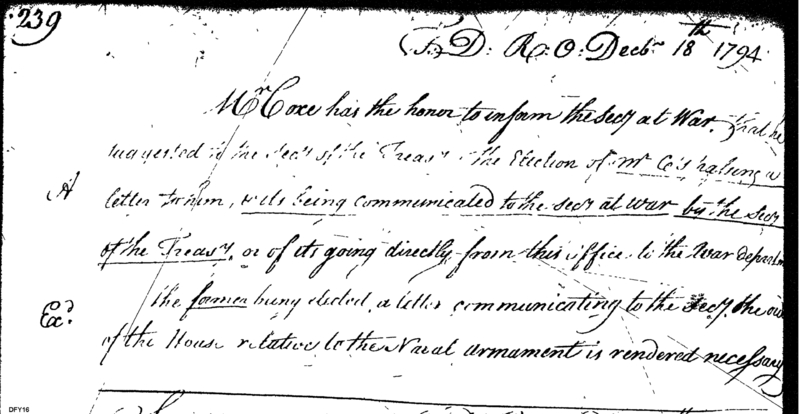 239
T: D: R: O: Decbr 18th 1794
Mr Coxe has the honor to inform the Secy at War, that he
suggested to the Secy of the Treasy the Election of Mr C's a
A letter to him, & its being communicated to the Secy at War by the Secy
of the Treasy, or of its going directly from this office to the War departm
Exd. The former being elected, a letter communicating to the Secy. the
of the House relative to the Naval armament is rendered necessary
DFY16